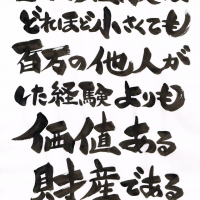 どれほど小さくても
百万の他人が
した経験よりも
価値ある
財産である